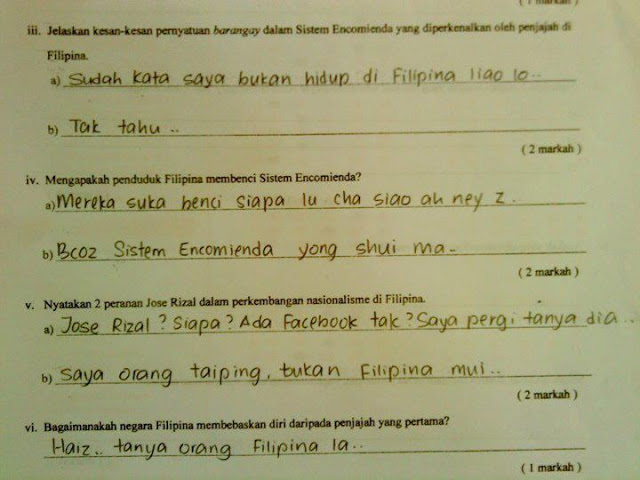 ( 1 markah )
iii. Jelaskan kesan-kesan pernyatuan barangay dalam Sistem Encomienda yang diperkenalkan oleh penjajah di
Filipina.
a) Sudah kata saya bukan hidup di Filipina liao lo..
b) Tak tahu ..
( 2 markah )
iv. Mengapakah penduduk Filipina membenci Sistem Encomienda?
a) Mereka suka benci siapa lu cha siao ah ney z .
b) Bcoz Sistem Encomienda yong shui ma -
( 2 markah )
v. Nyatakan 2 peranan Jose Rizal dalam perkembangan nasionalisme di Filipina.
a) Jose Rizal ? Siapa ? Ada Facebook tak ? Saya pergi tanya dia ..
b) saya orang taiping, bukan Filipina mui ..
( 2 markah )
vi. Bagaimanakah negara Filipina membebaskan diri daripada penjajah yang pertama?
Haiz .. tanya orang Filipina la ..
( 1 markah )